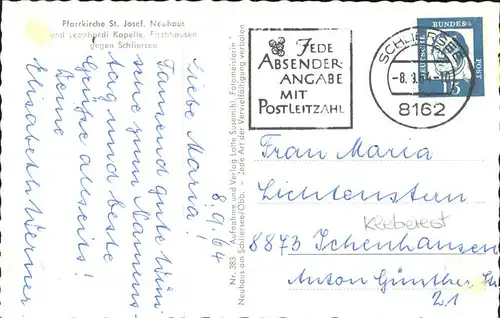 Pfarrkirche St. Josef, Neuhaus
und Leonhardi Kapelle, Fischhausen
gegen Schliersee
8./9./64
Liebe Maria!
Tausend gute Wün-
sche zum Namens-
tag und beste
Grüße allseits!
Deine
Elisabeth Werner
Nr. 383 Aufnahme und Verlag Lotte Susemihl, Fotomeisterin
Neuhaus am Schliersee/Obb. - Jede Art der Vervielfältigung verboten
JEDE
ABSENDER-
ANGABE
MIT
POSTLEITZAHL
SCHLIERSEE
-8.9.64-
8162
DEUTSCHE BUNDESPOST
15
Frau Maria
Lichtenstern
Kleberest
8873 Ichenhausen
Anton Günther Str
21